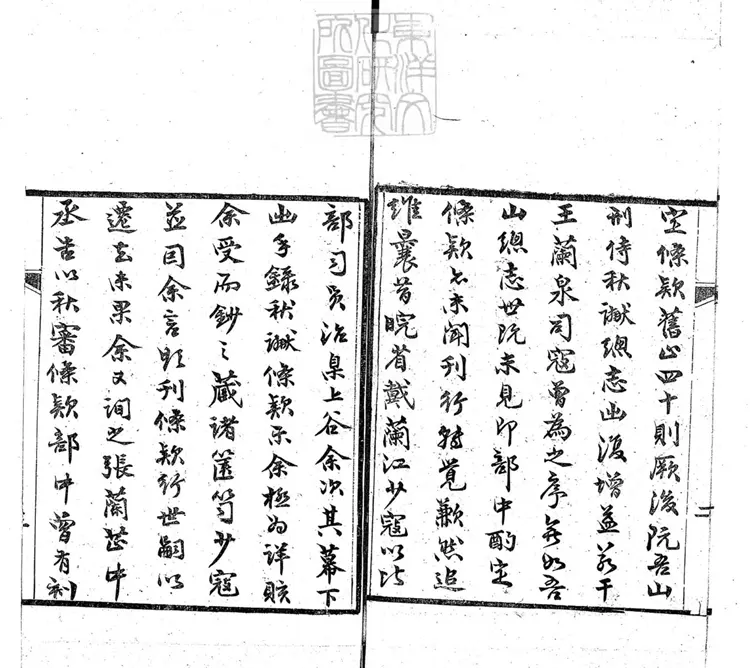 東洋文
化研究
所圖書
定條款舊止四十則厥後阮吾山
刑侍秋讞總志出復增益若干
王蘭泉司寇曾為之序無如吾
山總志世既未見即部中酌定
條款亦未聞刊行轉覺歉然追
維曩昔皖省戴蘭江少寇以比
二
部司員治臬上谷余次其幕下
出手錄秋讞條款示余極為詳賅
余受而鈔之藏諸篋笥少寇
並因余言刊條款行世嗣以
遷去未果余又詢之張蘭渚中
丞告以秋審條款部中曾有刻